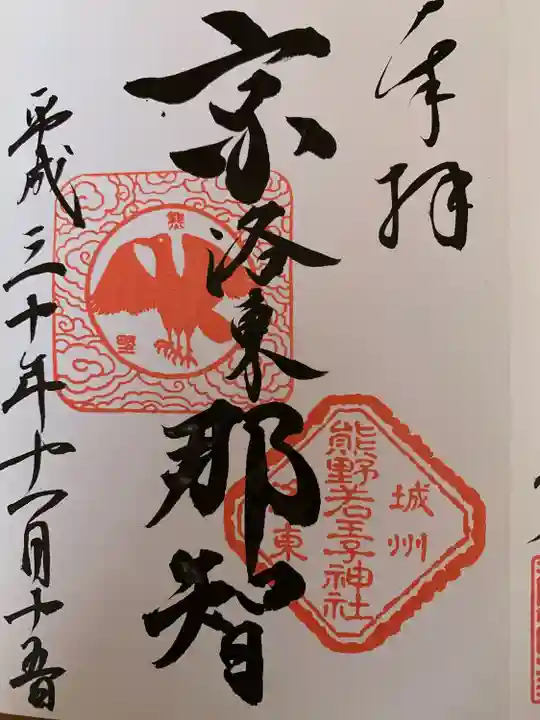 奉拝
京洛東那智
城州
熊野若王子神社
東
熊
平成三十年十一月十五日